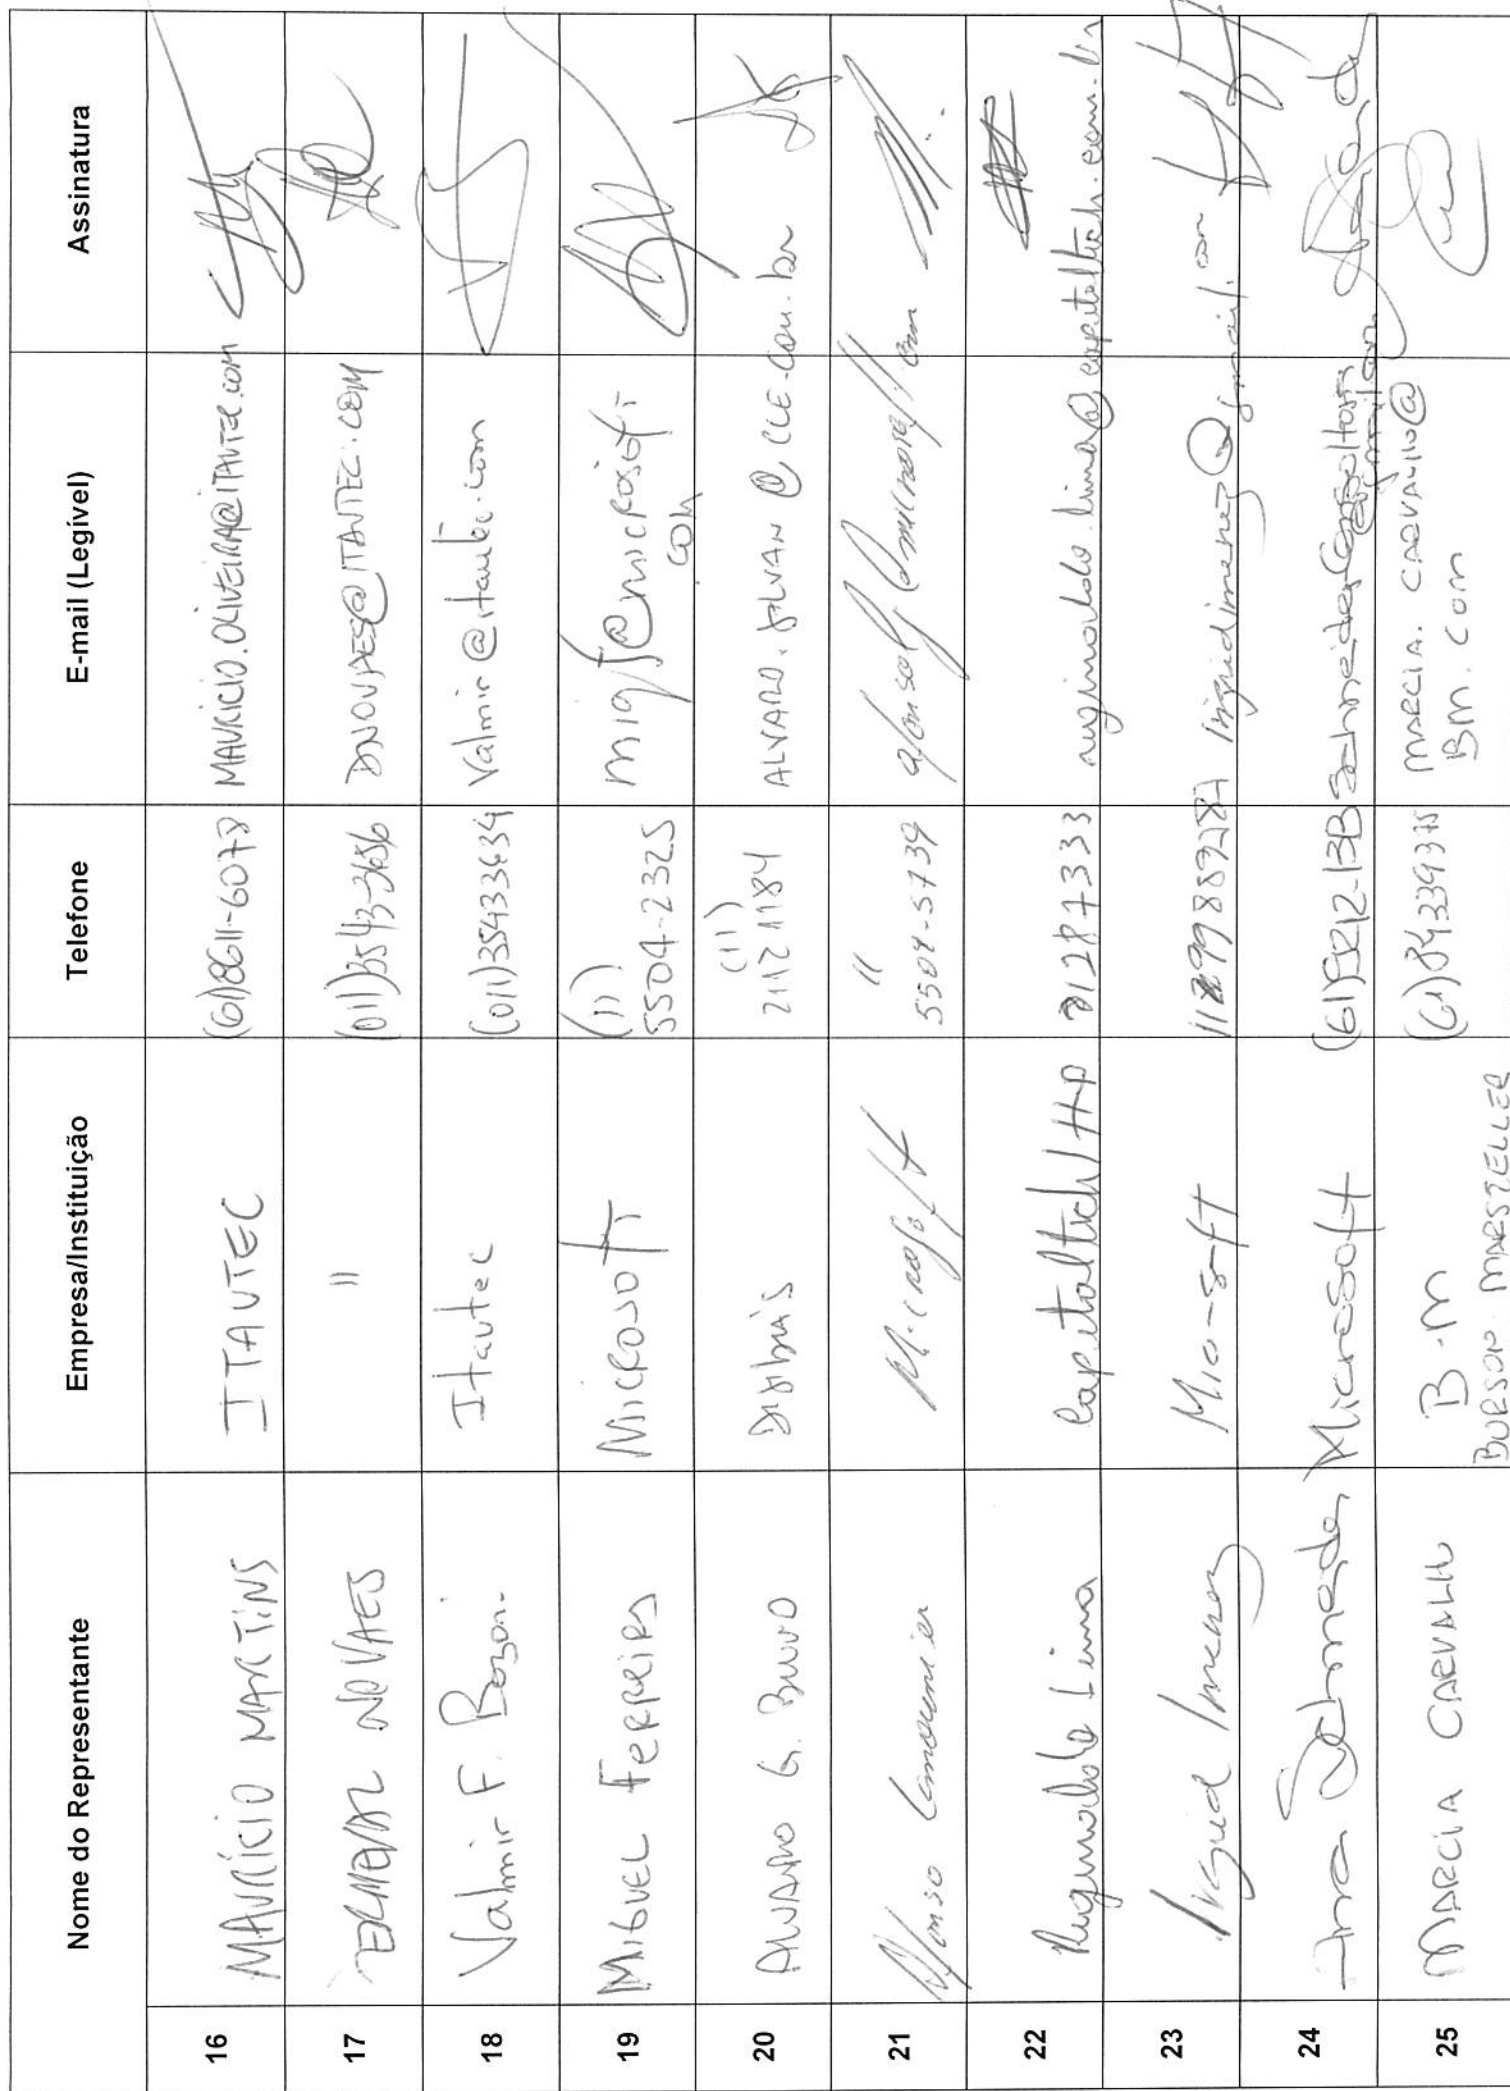 Nome do Representante Empresa/Instituição Telefone E-mail (Legível) Assinatura
16 MAURÍCIO MARTINS ITAUTEC (61)8611-6078 MAURICIO.OLIVEIRA@ITAUTEC.COM
17 NOVAES " (011)3543-3656 DNOVAES@ITAUTEC.COM
18 Valmir F. Itautec (011)35433634 Valmir@itautec.com
19 MIGUEL FERREIRA MICROSOFT (11)
5504-2325 migf@microsoft
com
20 ALVARO G. (11)
21121184 ALVARO. @CCE.com.br
21 Afonso Lamounier Microsoft 11
5504-5739 afonsol@microsoft.com
22 Reginaldo Lima Capitaltech/HP 21287333 reginaldo.lima@capitaltech.com.br
23 Microsoft @gmail.com
24 Microsoft (61)
25 MARCIA CARVALHO B.M
BURSON. MARSTELLER (61)84339375 MARCIA.CARVALHO@
BM.COM